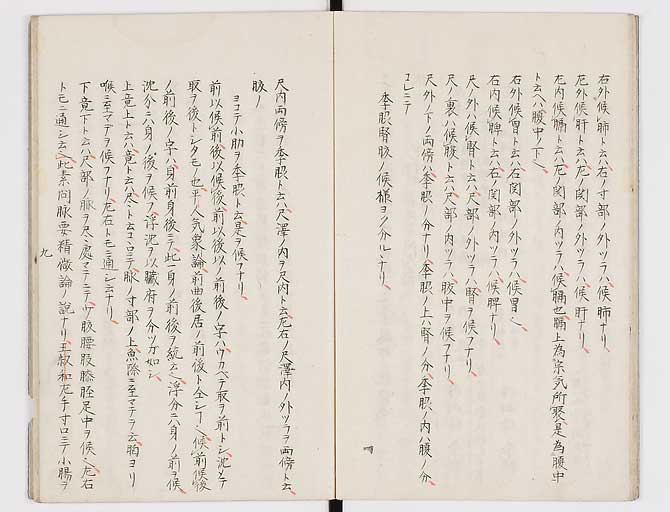 右外候肺ト云ハ右ノ寸部ノ外ツラハ候肺ナリ
左外候肝ト云ハ左ノ関部ノ外ツラハ候肝ナリ
左内候膈ト云ハ左ノ関部ノ内ツラハ候膈也膈上為宗気所聚是為膻中
ト云ヘハ膻中ノ下
右外候胃ト云ハ右関部ノ外ツラハ候胃
右内候脾ト云ハ右ノ関部ノ内ツラハ候脾ナリ
尺ノ外ハ候腎ト云ハ尺部ノ外ツラハ腎ヲ候フナリ
尺ノ裏ハ候腹ト云ハ尺部ノ内ツラハ腹中ヲ候フナリ
尺外ノ下ノ両傍ハ季脇ノ分ナリ季脇ノ上ハ腎ノ分季脇ノ内ハ腹ノ分
コレニテ
季脇腎腹ノ候様ヨク分ルンナリ
尺内両傍ヲ季脇ト云ハ尺澤ノ内ヲ尺内ト云左右ノ尺澤内ノ外ツラヲ両傍ト云
脇ノ
ヨコテ小肋ヲ季脇ト云是ヲ候フナリ
前以候前後以候後前以後以ノ前後ノ字ハウカベテ取ヲ前トシ沈メテ
取ヲ後トシタモノ也平人気象論前曲後居ノ前後ト全シ候前候後
ノ前後ノ字ハ身前身後ニテ此一身ノ前後ヲ統云浮分ニハ身ノ前ヲ候
沈分ニハ身ノ後ヲ候フ浮沈ヲ以臓府ヲ分ツカ如シ
上竟上ト云ハ竟ト云ハ尽トト云コロニテ脉ノ寸部ノ上魚際ニ至マテヲ云胸ヨリ
喉ニ至マテヲ候フナリ左右トモニ通シ云ナリ
下竟下ト云ハ尺部ノ脉ヲ尽処マテニテ股腰股膝脛足中ヲ候左右
トモニ通シ云此素問脉要精微論ノ説ナリ王叔和左手寸口ニテ小腸ヲ
九